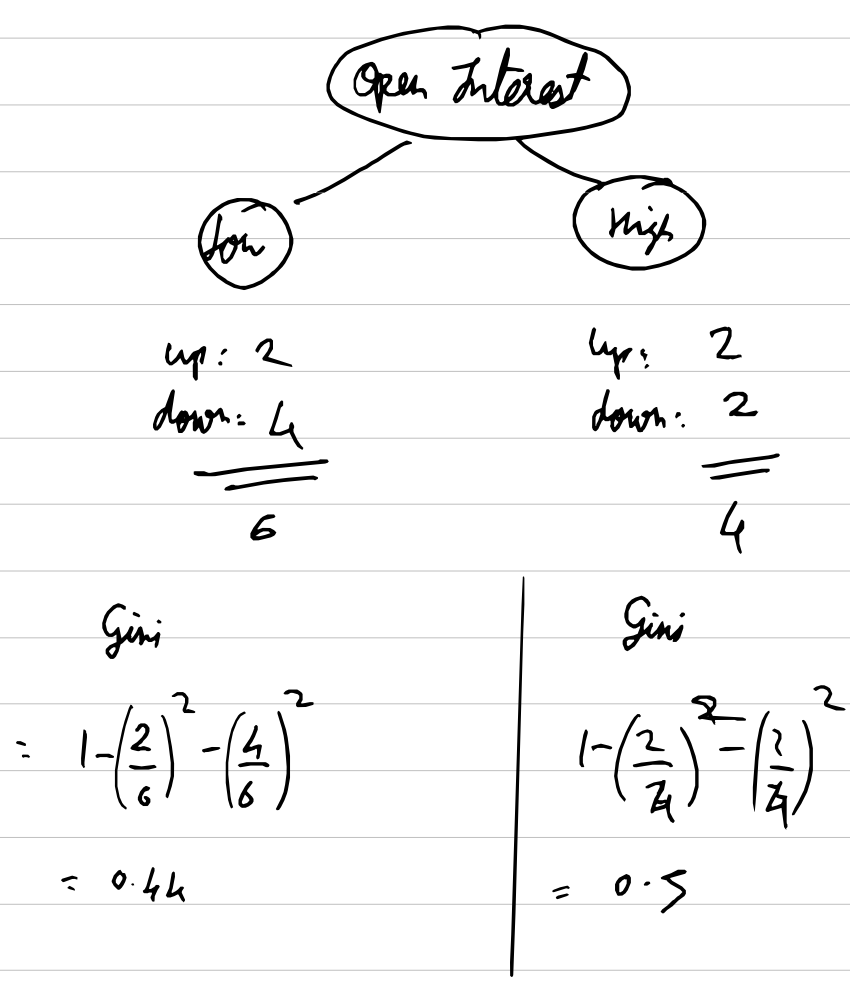 Open Interest
Low
High
up: 2
down: 4
6
up: 2
down: 2
4
Gini
= 1-(2/6)² - (4/6)²
= 0.44
Gini
1-(2/4)² - (2/4)²
= 0.5